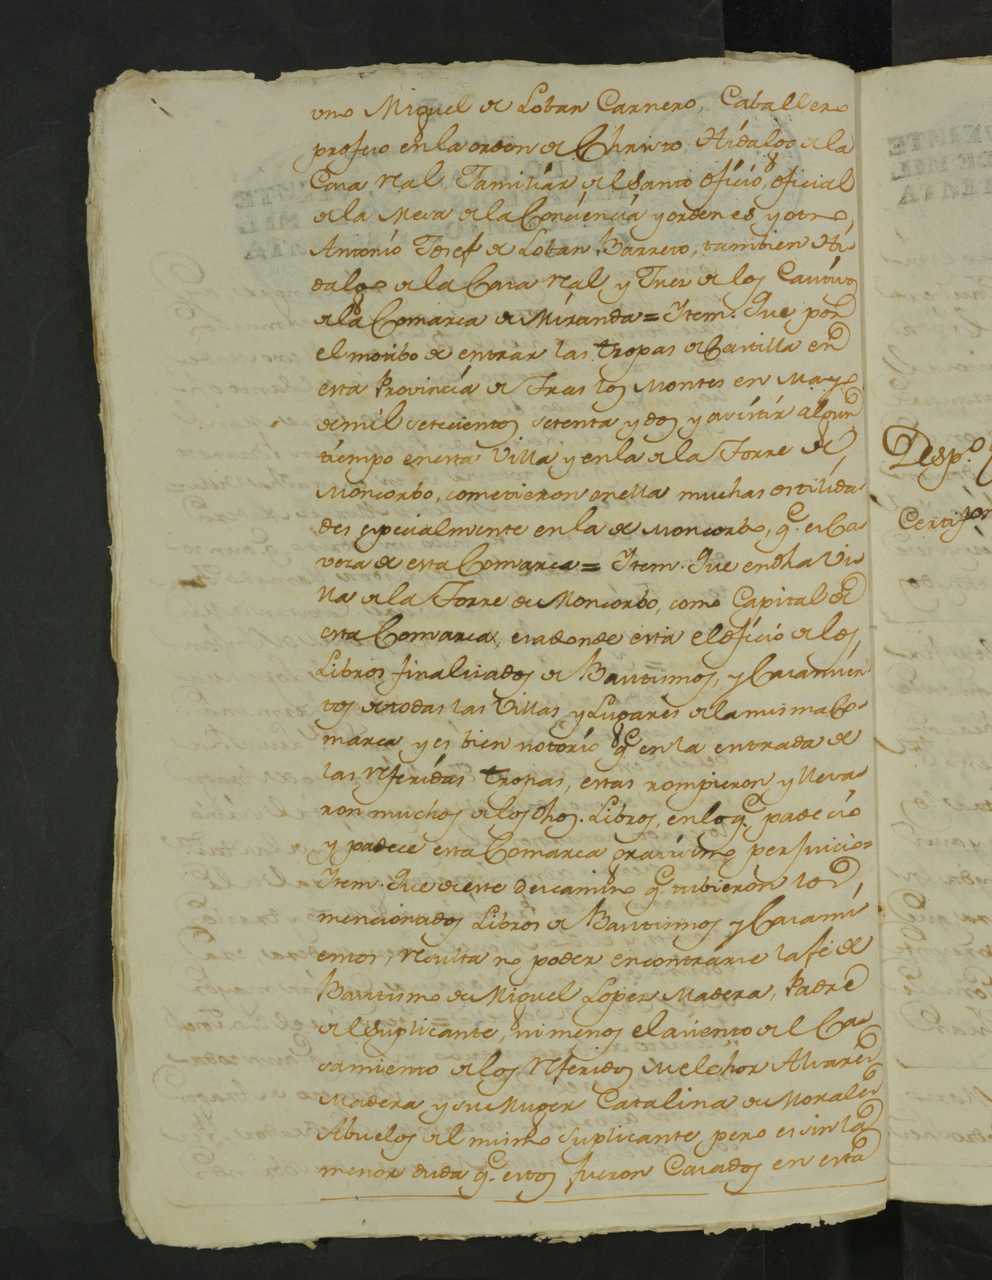 uno Miguel de Loban Carnero, Caballero
profeso en la orden de Christo Hidalgo de la
Casa Real, Familiar del Santo oficio, oficial
de la Mesa de la Conciencia y ordenes, y otro,
Antonio Josef de Loban Barrero, tambien Hi-
dalgo de la Casa Real y Juez de los Cautivos
de la Comarca de Miranda = Item. Que por
el motibo de entrar las tropas de Castilla en
esta Provincia de Tras los Montes en Mayo
de mil setecientos setenta y dos y asistir algun
tiempo en esta Villa y en la de la Torre de
Moncorbo, cometieron en ella muchas ostilida-
des especialmente en la de Moncorbo, q.e es Ca-
veza de esta Comarca = Item. Que en dha Vi-
lla de la Torre de Moncorbo, como Capital de
esta Comarca, es adonde esta el oficio de los
Libros finalizados de Bautismos, y Casamien-
tos de todas las Villas y Lugares de la misma Co-
marca, y es bien notorio q.e en la entrada de
las referidas tropas, estas rompieron y lleva-
ron muchos de los dhos. Libros, en lo q.e padecio
y padece esta Comarca gravisimo perjuicio =
Item. Que de este descamino q.e tubieron los
mencionados Libros de Bautismos y Casami-
entos, resulta no poder encontrarse la fe de
Bautismo de Miguel Lopez Madera, Padre
del Suplicante, ni menos el asiento del Ca-
samiento de los referidos Melchor Alvarez
Madera y su Muger Catalina de Morales
Abuelos del mismo Suplicante, pero es sin la
menor duda q.e estos fueron Casados en esta
Desp.o
Certifon